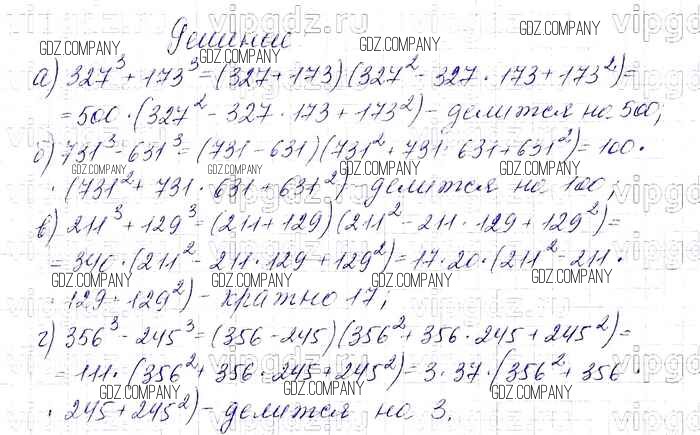 Решение
а) 327³ + 173³ = (327 + 173)(327² - 327 · 173 + 173²) =
= 500 · (327² - 327 · 173 + 173²) - делится на 500;
б) 731³ - 631³ = (731 - 631)(731² + 731 · 631 + 631²) = 100 ·
· (731² + 731 · 631 + 631²) - делится на 100;
в) 211³ + 129³ = (211 + 129)(211² - 211 · 129 + 129²) =
= 340 · (211² - 211 · 129 + 129²) = 17 · 20 · (211² - 211 ·
· 129 + 129²) - кратно 17;
г) 356³ - 245³ = (356 - 245)(356² + 356 · 245 + 245²) =
= 111 · (356² + 356 · 245 + 245²) = 3 · 37 · (356² + 356 ·
· 245 + 245²) - делится на 3.